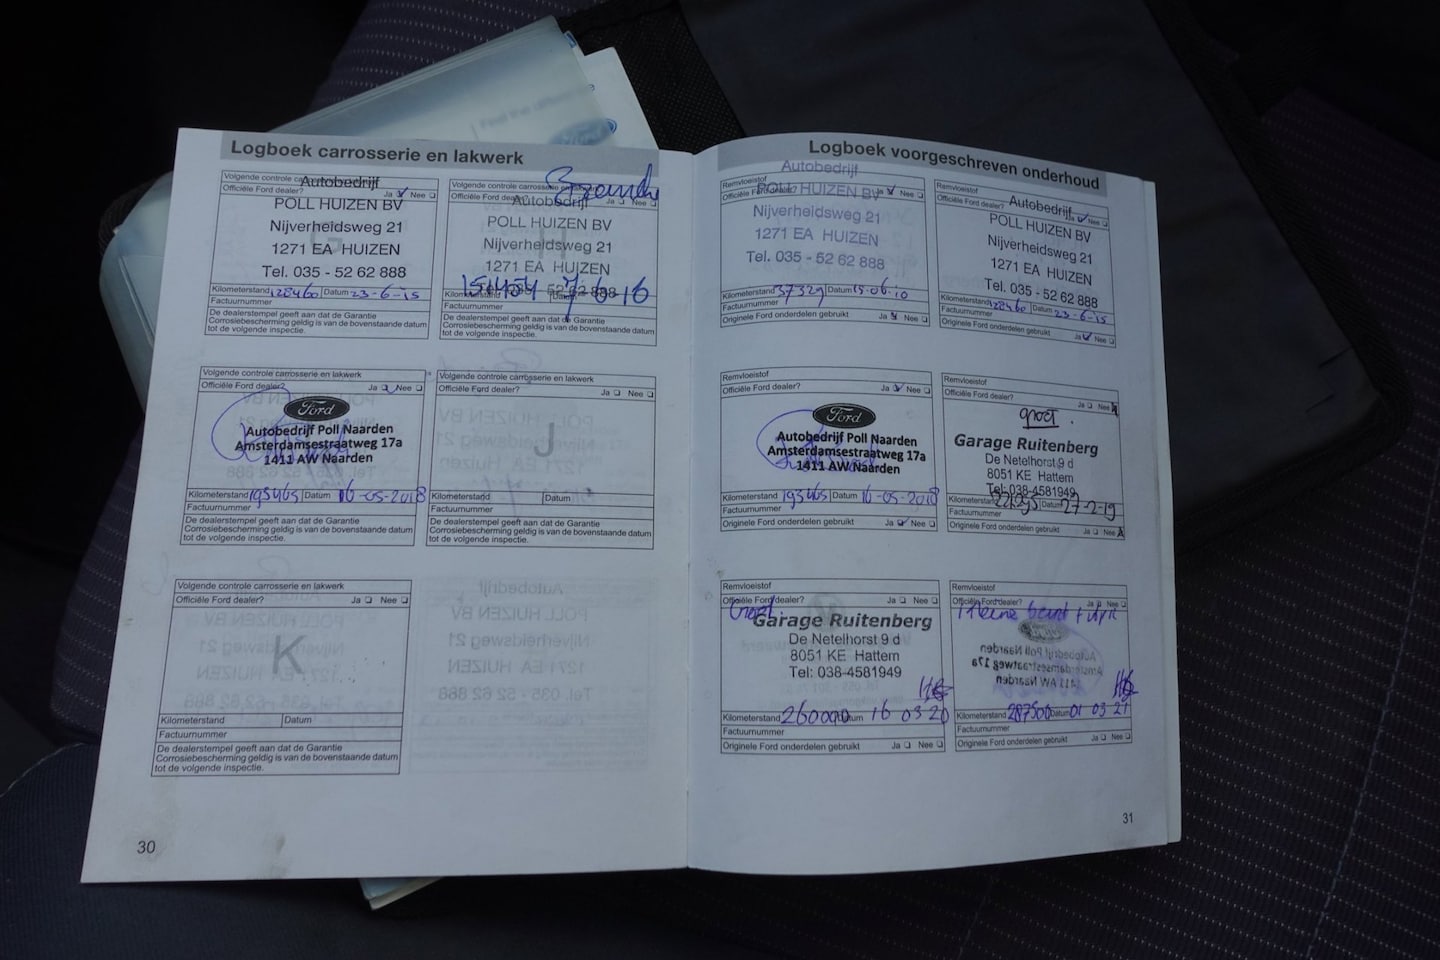 Logboek carrosserie en lakwerk
Volgende controle
Officiële Ford dealer? Ja Nee
Autobedrijf
POLL HUIZEN BV
Nijverheidsweg 21
1271 EA HUIZEN
Tel. 035 - 52 62 888
Kilometerstand 128460 Datum 23-6-15
Factuurnummer
De dealerstempel geeft aan dat de Garantie
Corrosiebescherming geldig is van de bovenstaande datum
tot de volgende inspectie.
Volgende controle
Officiële Ford Ja Nee
Autobedrijf
POLL HUIZEN BV
Nijverheidsweg 21
1271 EA HUIZEN
52 62 888
151454 7-6-16
Kilometerstand
Factuurnummer
De dealerstempel geeft aan dat de Garantie
Corrosiebescherming geldig is van de bovenstaande datum
tot de volgende inspectie.
Volgende controle carrosserie en lakwerk
Officiële Ford dealer? Ja Nee
Ford
Autobedrijf Poll Naarden
Amsterdamsestraatweg 17a
1411 AW Naarden
Kilometerstand 195465 Datum 16-05-2018
Factuurnummer
De dealerstempel geeft aan dat de Garantie
Corrosiebescherming geldig is van de bovenstaande datum
tot de volgende inspectie.
Volgende controle carrosserie en lakwerk
Officiële Ford dealer? Ja Nee
J
Kilometerstand Datum
Factuurnummer
De dealerstempel geeft aan dat de Garantie
Corrosiebescherming geldig is van de bovenstaande datum
tot de volgende inspectie.
Volgende controle carrosserie en lakwerk
Officiële Ford dealer? Ja Nee
K
Kilometerstand Datum
Factuurnummer
De dealerstempel geeft aan dat de Garantie
Corrosiebescherming geldig is van de bovenstaande datum
tot de volgende inspectie.
30
Logboek voorgeschreven onderhoud
Autobedrijf
Remvloeistof
POLL HUIZEN BV Ja Nee
Nijverheidsweg 21
1271 EA HUIZEN
Tel. 035 - 52 62 888
Kilometerstand 37329 Datum 15-06-10
Factuurnummer
Originele Ford onderdelen gebruikt Ja Nee
Remvloeistof
Officiële Ford dealer? Ja Nee
Autobedrijf
POLL HUIZEN BV
Nijverheidsweg 21
1271 EA HUIZEN
Tel. 035 - 52 62 888
Kilometerstand 128460 Datum 23-6-15
Factuurnummer
Originele Ford onderdelen gebruikt Ja Nee
Remvloeistof
Officiële Ford dealer? Ja Nee
Ford
Autobedrijf Poll Naarden
Amsterdamsestraatweg 17a
1411 AW Naarden
Kilometerstand 195465 Datum 16-05-2018
Factuurnummer
Originele Ford onderdelen gebruikt Ja Nee
Remvloeistof
Officiële Ford dealer? Ja Nee
groot
Garage Ruitenberg
De Netelhorst 9 d
8051 KE Hattem
Tel: 038-4581949
Kilometerstand Datum 27-2-19
Factuurnummer
Originele Ford onderdelen gebruikt Ja Nee
Remvloeistof
Officiële Ford dealer? Ja Nee
Groot
Garage Ruitenberg
De Netelhorst 9 d
8051 KE Hattem
Tel: 038-4581949
Kilometerstand 260000 Datum 16 03 20
Factuurnummer
Originele Ford onderdelen gebruikt Ja Nee
Remvloeistof
Officiële Ford dealer? Ja Nee
Kleine beurt +
Autobedrijf Poll Naarden
Amsterdamsestraatweg 17a
1411 AW Naarden
Kilometerstand 287500 Datum 01 03 21
Factuurnummer
Originele Ford onderdelen gebruikt Ja Nee
31